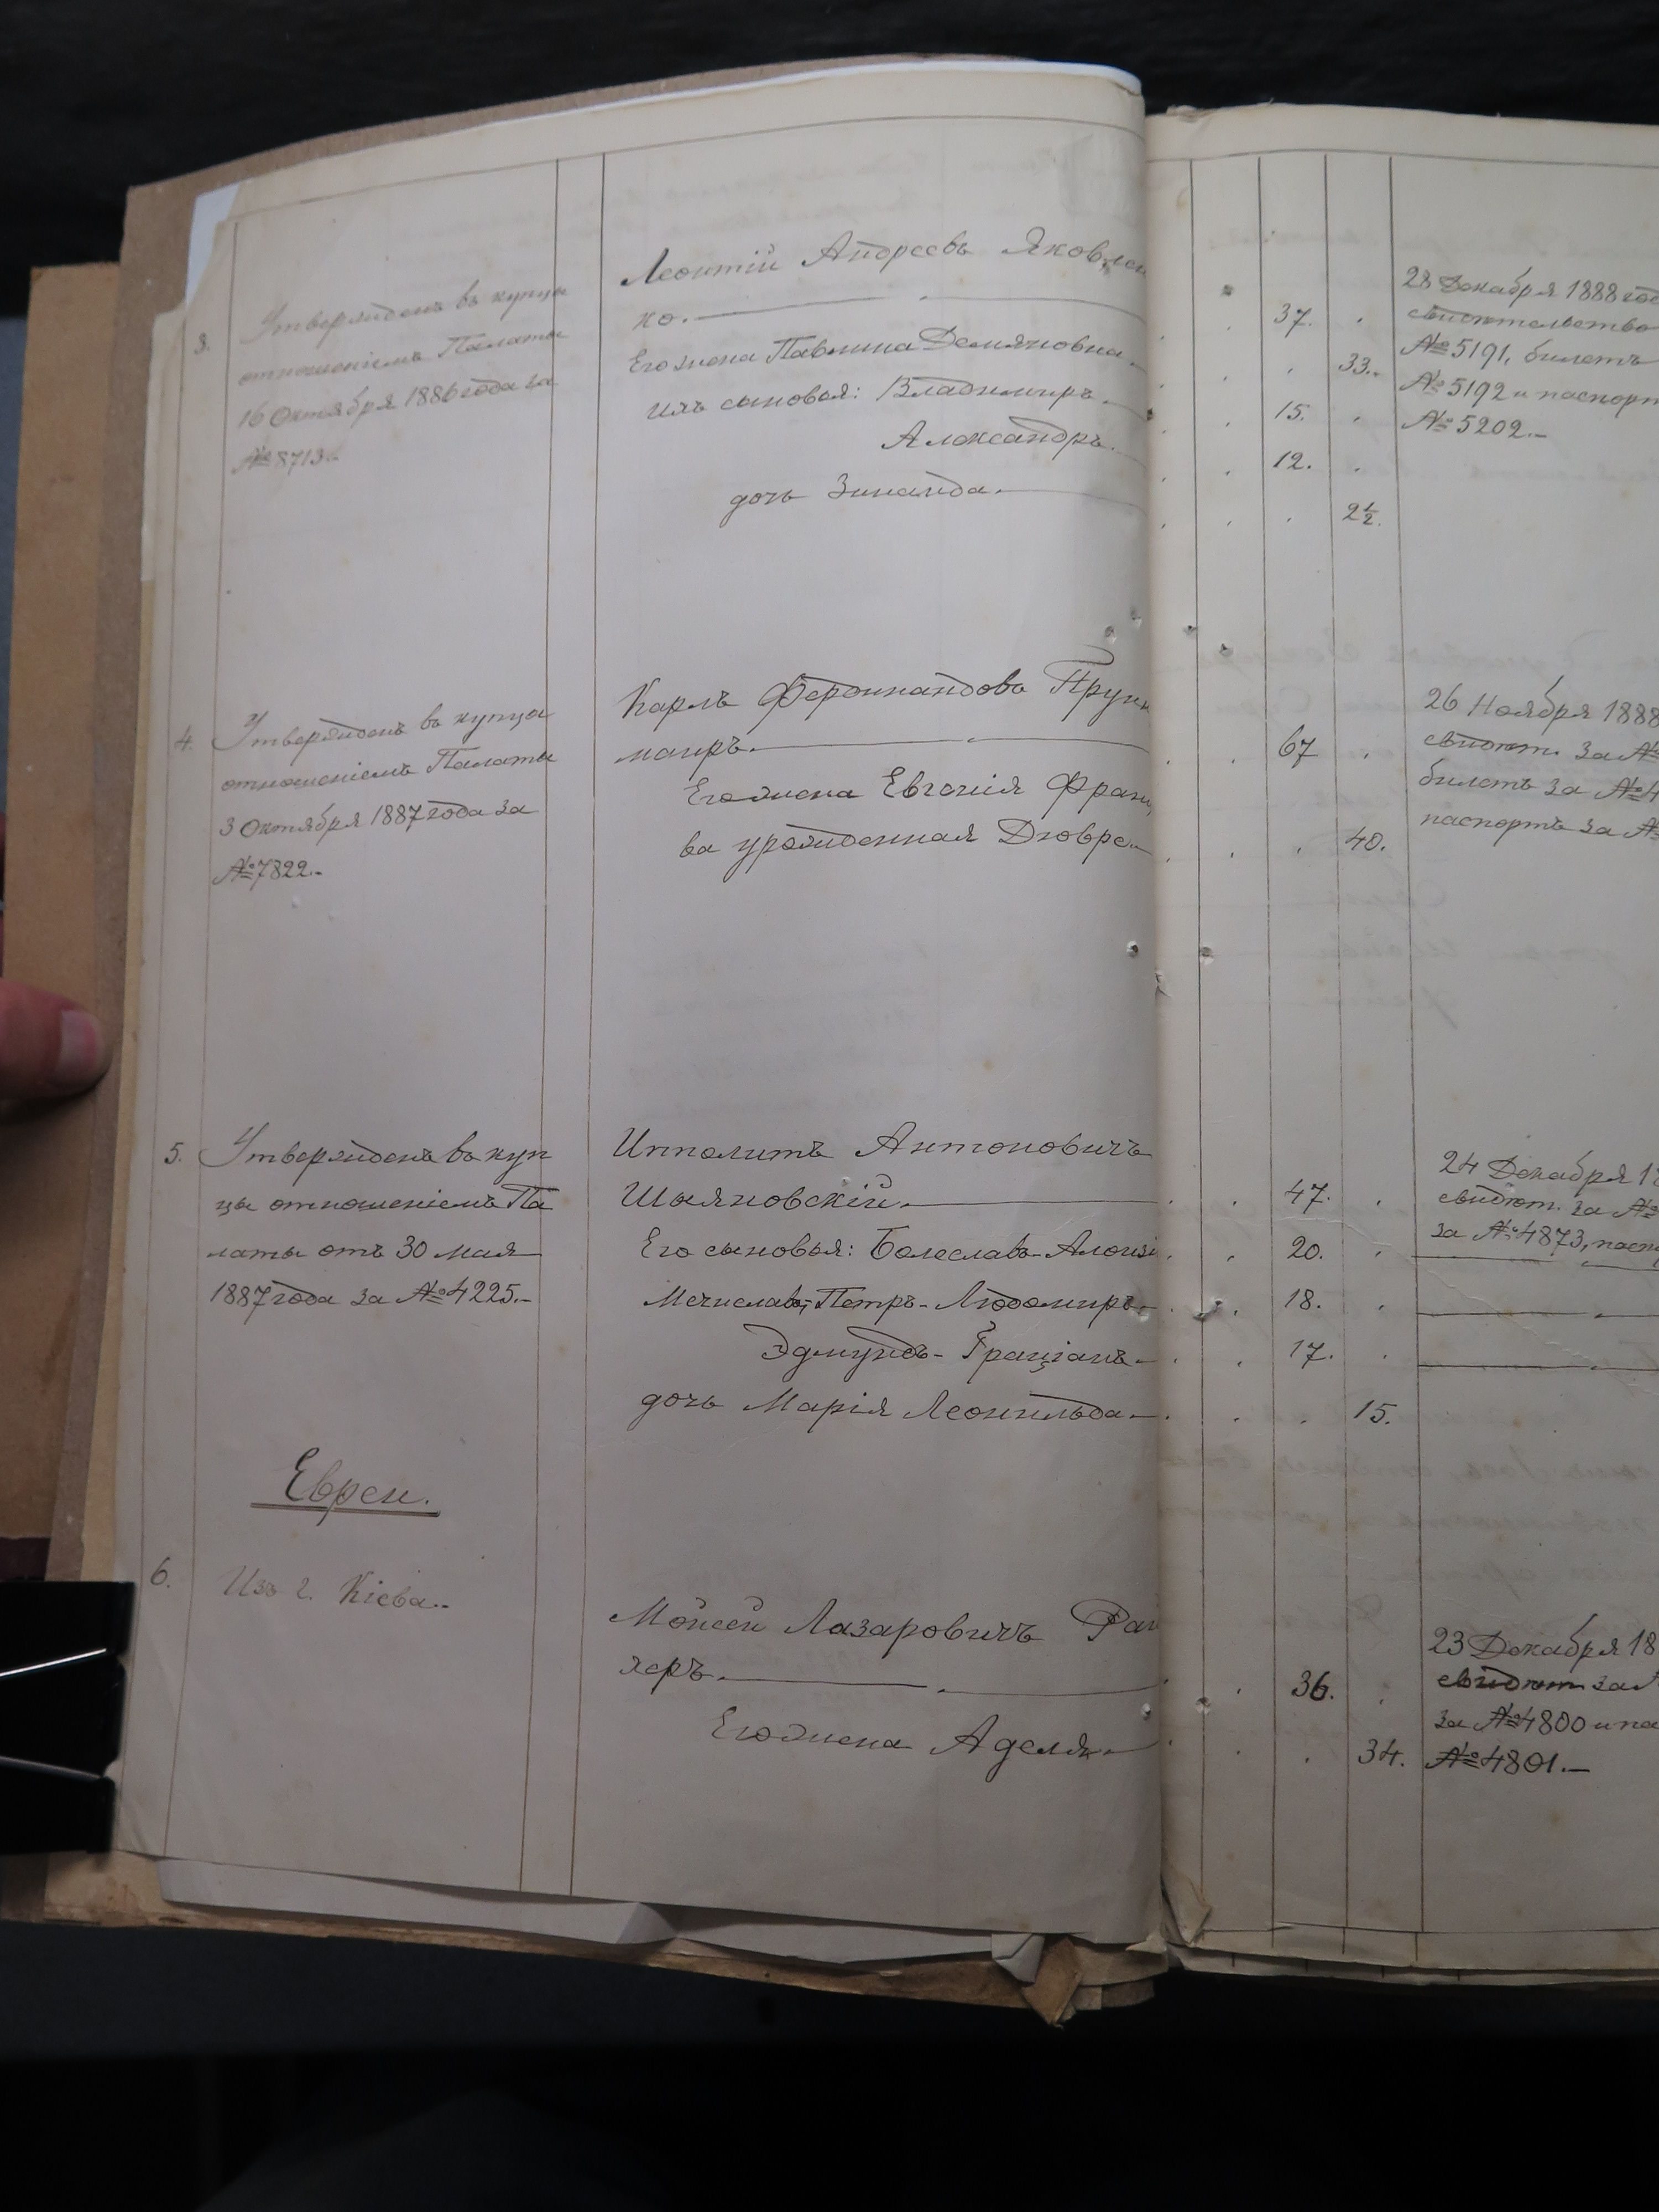 3.
Утвержденъ въ купцы
отношеніемъ Палаты
16 Октября 1886 года за
№ 8713.-
Леонтій Андреевъ Яковлен
ко.
37.
Его жена Павлина Демяновна
33.
ихъ сыновья: Владимиръ
15.
Александръ.
12.
дочь Зинаида.
2½.
28 Декабря 1888 год
свидѣтельство
№ 5191, билетъ
№ 5192 и паспорт
№ 5202.-
4.
Утвержденъ въ купцы
отношеніемъ Палаты
3 Октября 1887 года за
№ 7822.-
Карлъ Фердинандовъ
маиръ.
67
Его жена Евгенія Франц
ва урожденная Дювре
40.
26 Ноября 1888
свидѣт. за №
билетъ за № 4
паспортъ за №
5.
Утвержденъ въ куп
цы отношеніемъ Па
латы отъ 30 мая
1887 года за № 4225.-
Ипполитъ Антоновичъ
Шыяновскій.
47.
Его сыновья: Болеславъ-Алоизі
20.
Мечиславъ, Петръ-Людомиръ
18.
Эдмундъ-Граціанъ
17.
дочь Марія Леонильда
15.
24 Декабря 18
свидѣт. за №
за № 4873, пасп
Евреи.
6.
Изъ г. Кіева.-
Мойсей Лазаровичъ Рай
херъ.
36.
Его жена Аделя
34.
23 Декабря 18
свидѣт за №
за № 4800 и па
№ 4801.-